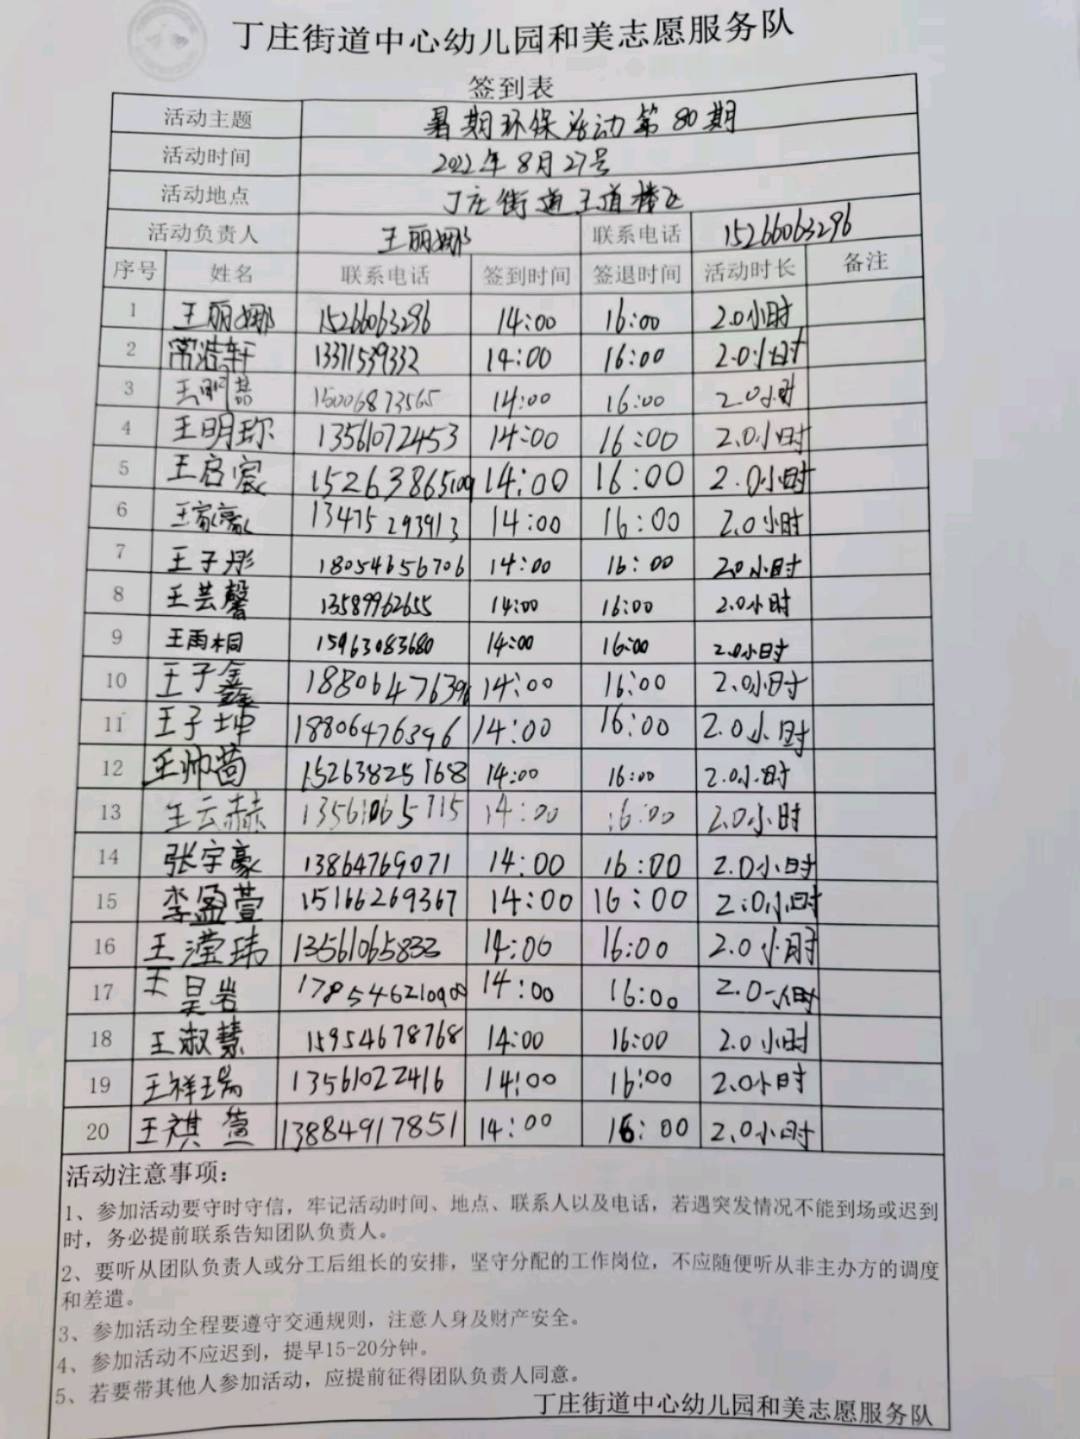 丁庄街道中心幼儿园和美志愿服务队
签到表
活动主题 暑期环保活动第80期
活动时间 2022年8月27号
活动地点 丁庄街道王道楼区
活动负责人 王丽娜 联系电话 15266063296
序号 姓名 联系电话 签到时间 签退时间 活动时长 备注
1 王丽娜 15266063296 14:00 16:00 2.0小时
2 常浩轩 13371539332 14:00 16:00 2.0小时
3 15006873565 14:00 16:00 2.0小时
4 王明珎 13561072453 14:00 16:00 2.0小时
5 王启宸 14:00 16:00 2.0小时
6 王家豪 13475293913 14:00 16:00 2.0小时
7 王子彤 18054656706 14:00 16:00 2.0小时
8 王芸馨 13589962655 14:00 16:00 2.0小时
9 王雨桐 15963083680 14:00 16:00 2.0小时
10 王子鑫 18806476396 14:00 16:00 2.0小时
11 王子坤 18806476396 14:00 16:00 2.0小时
12 王帅茴 15263825168 14:00 16:00 2.0小时
13 王云赫 13561065715 14:00 16:00 2.0小时
14 张宇豪 13864769071 14:00 16:00 2.0小时
15 李盈萱 15166269367 14:00 16:00 2.0小时
16 王滢玮 13561065833 14:00 16:00 2.0小时
17 王昊岩 14:00 16:00 2.0小时
18 王淑慧 15954678768 14:00 16:00 2.0小时
19 王祥瑞 13561022416 14:00 16:00 2.0小时
20 王祺萱 13884917851 14:00 16:00 2.0小时
活动注意事项：
1、参加活动要守时守信，牢记活动时间、地点、联系人以及电话，若遇突发情况不能到场或迟到
时，务必提前联系告知团队负责人。
2、要听从团队负责人或分工后组长的安排，坚守分配的工作岗位，不应随便听从非主办方的调度
和差遣。
3、参加活动全程要遵守交通规则，注意人身及财产安全。
4、参加活动不应迟到，提早15-20分钟。
5、若要带其他人参加活动，应提前征得团队负责人同意。
丁庄街道中心幼儿园和美志愿服务队